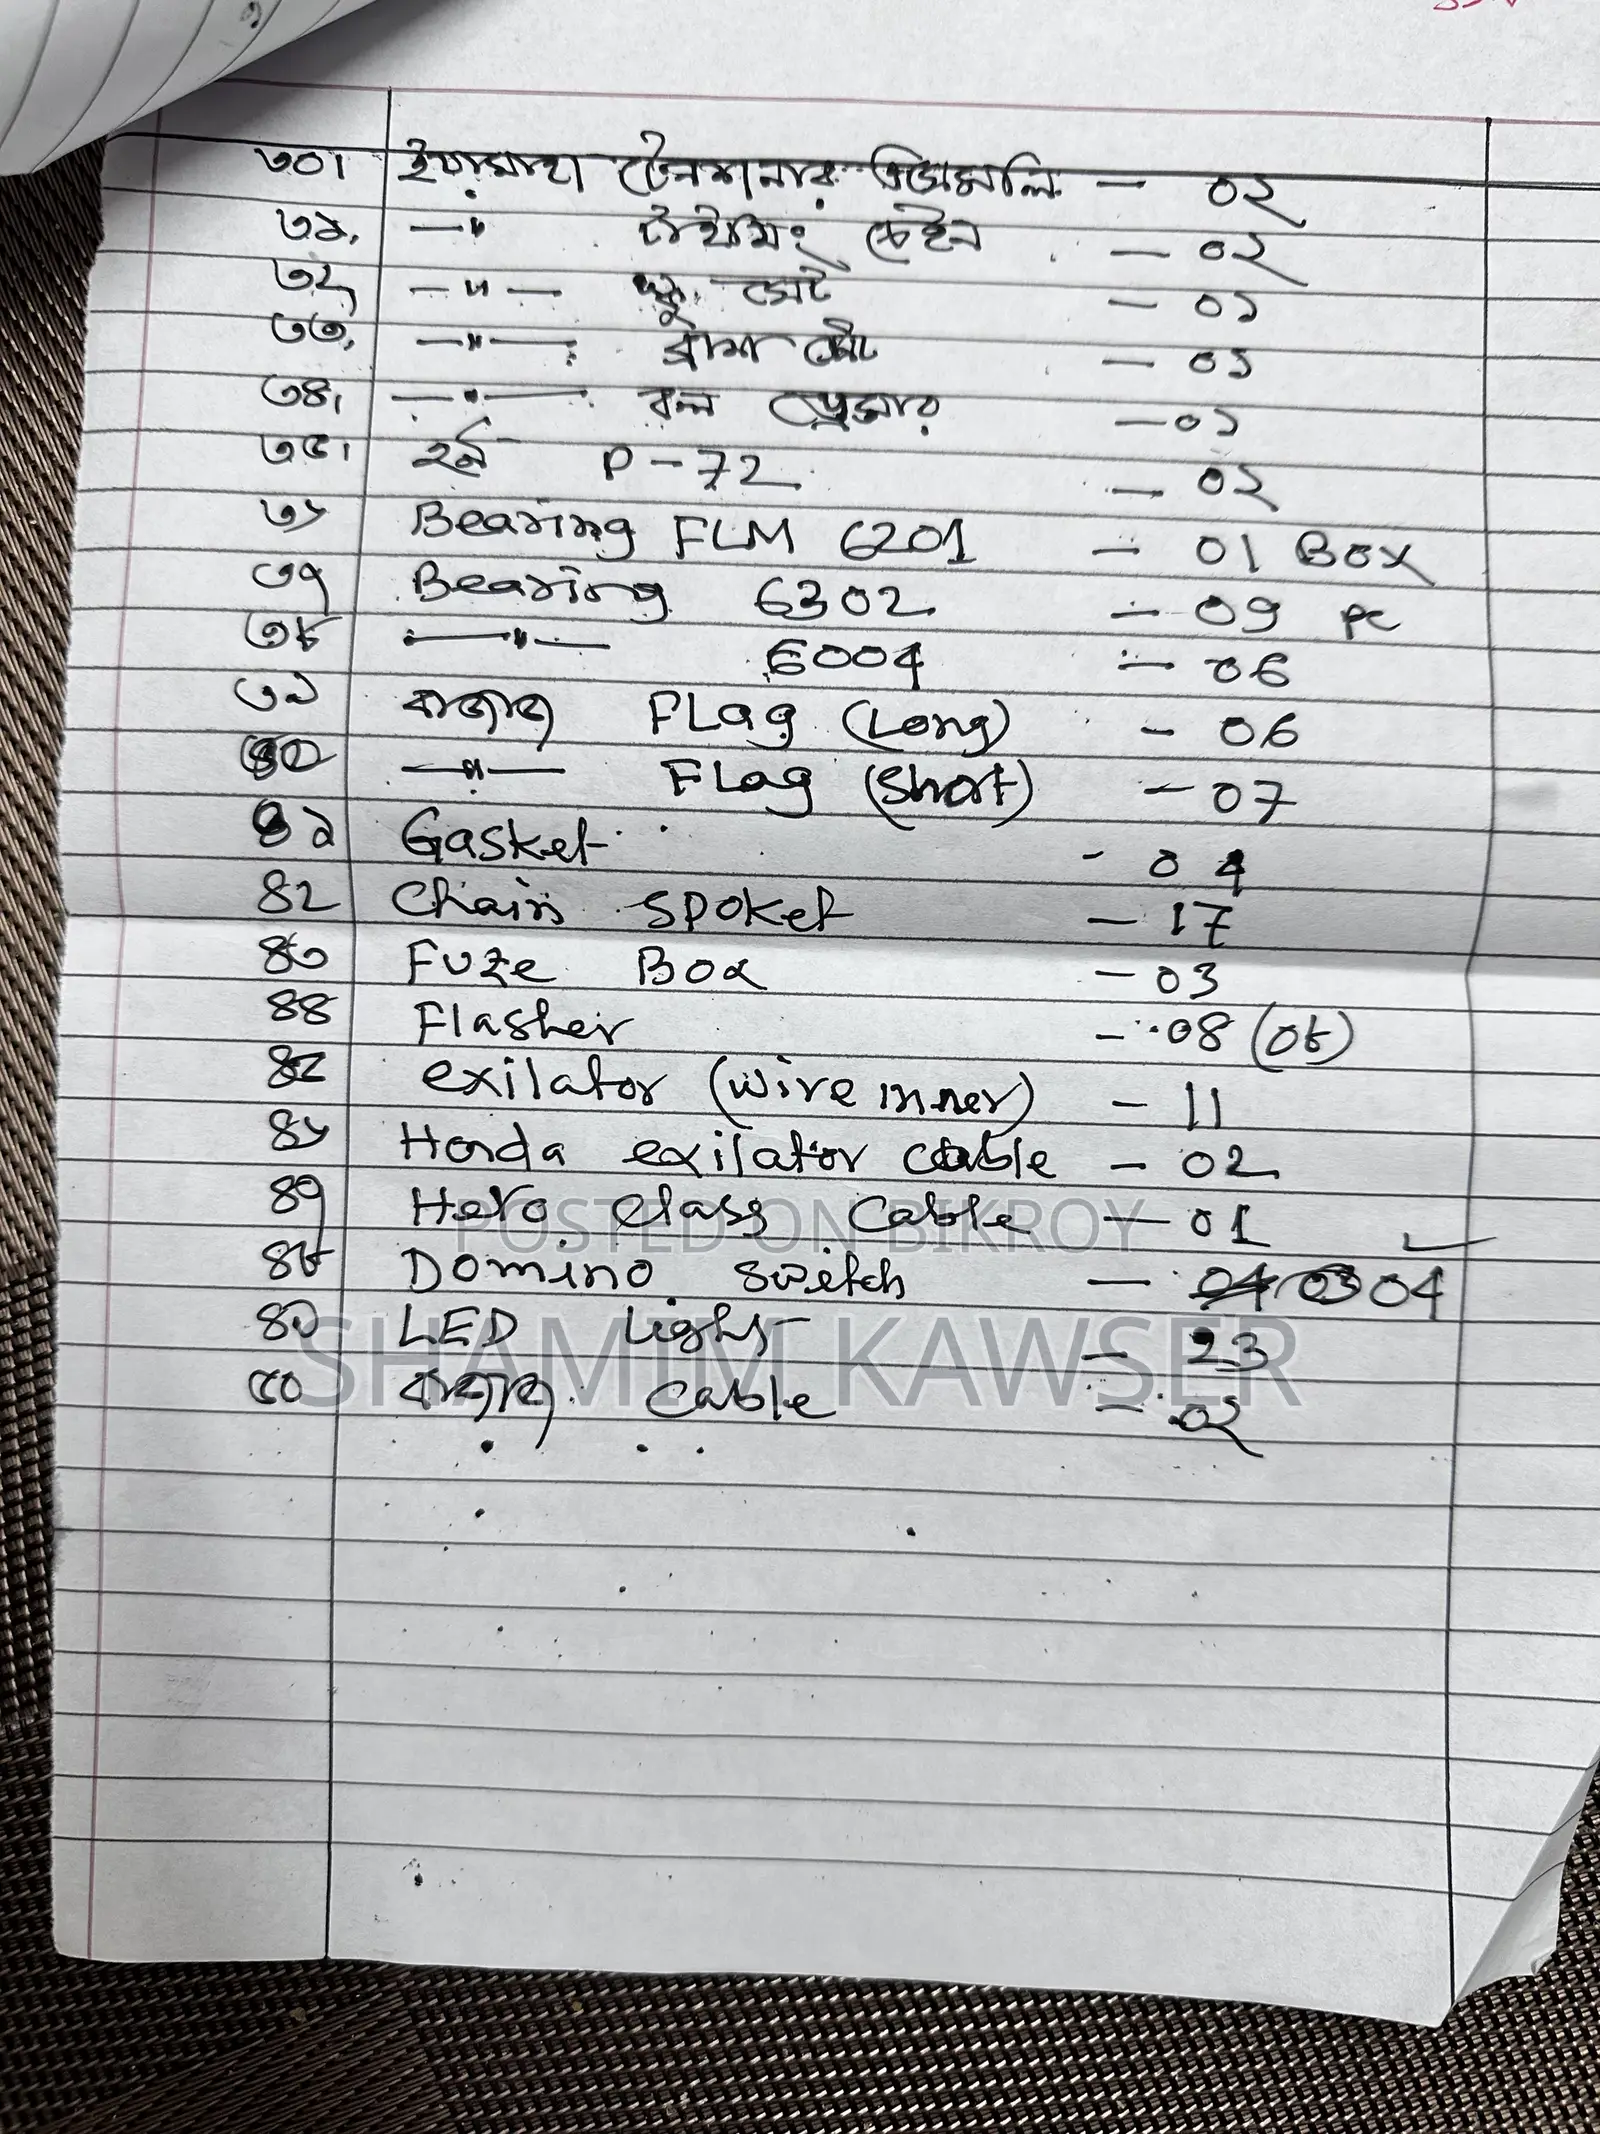 ৩০। ইয়ামাহা টেনশনার এসেম্বলি — ০২
৩১. —"— টাইমিং চেইন — ০২
৩২ —"— স্ক্রু সেট — ০১
৩৩. —"— ব্রাশ সেট — ০১
৩৪। —"— বল প্রেসার — ০১
৩৫। হর্ন P-72 — ০২
৩৬ Bearing FLM 6201 — 01 Box
৩৭ Bearing 6302 — 09 pc
৩৮ —"— 6004 — 06
৩৯ বাজাজ FLag (Long) — 06
৪০ —"— FLag (Short) — 07
৪১ Gasket - 04
৪২ Chain spoket — 17
৪৩ Fuze Box — 03
৪৪ Flasher — 08 (০৮)
৪৫ exilator (wire inner) — 11
৪৬ Honda exilator cable — 02
৪৭ Hero class Cable — 01
৪৮ Domino switch — 04 03 04
৪৯ LED Light — 23
৫০ বাজাজ Cable — ০২
POSTED ON BIKROY
SHAMIM KAWSER